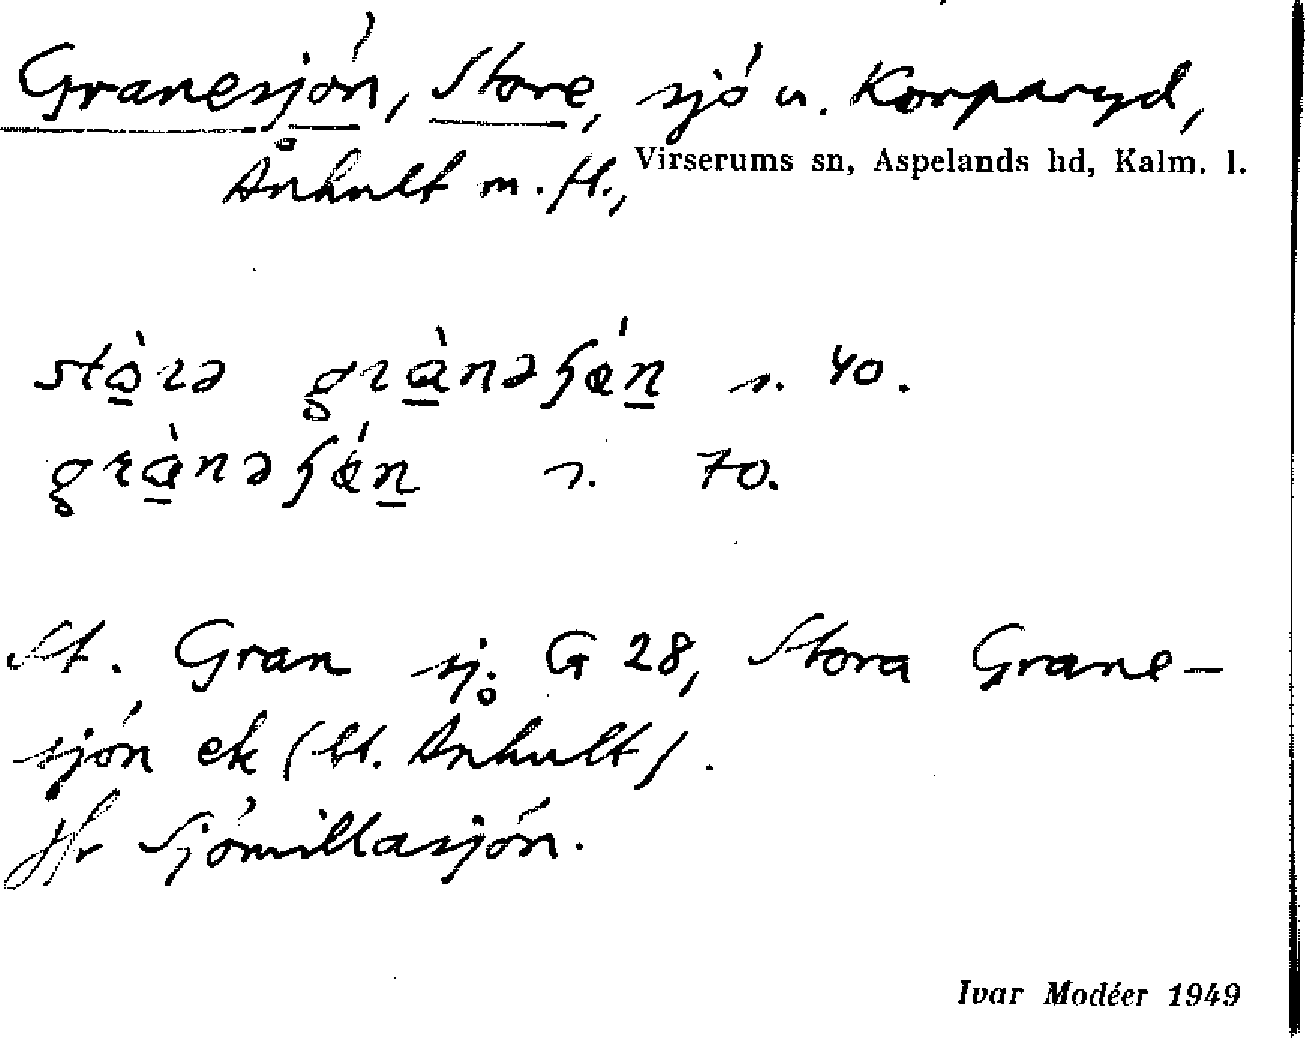 Granesjön, Store, sjö u. Korparyd,
Ånhult m. fl., Virserums sn, Aspelands hd, Kalm. l.
s. 40.
s. 70.
St. Gran sj. G 28, Stora Grane-
sjön ek (bl. Ånhult).
Jfr Sjömillasjön.
Ivar Modéer 1949